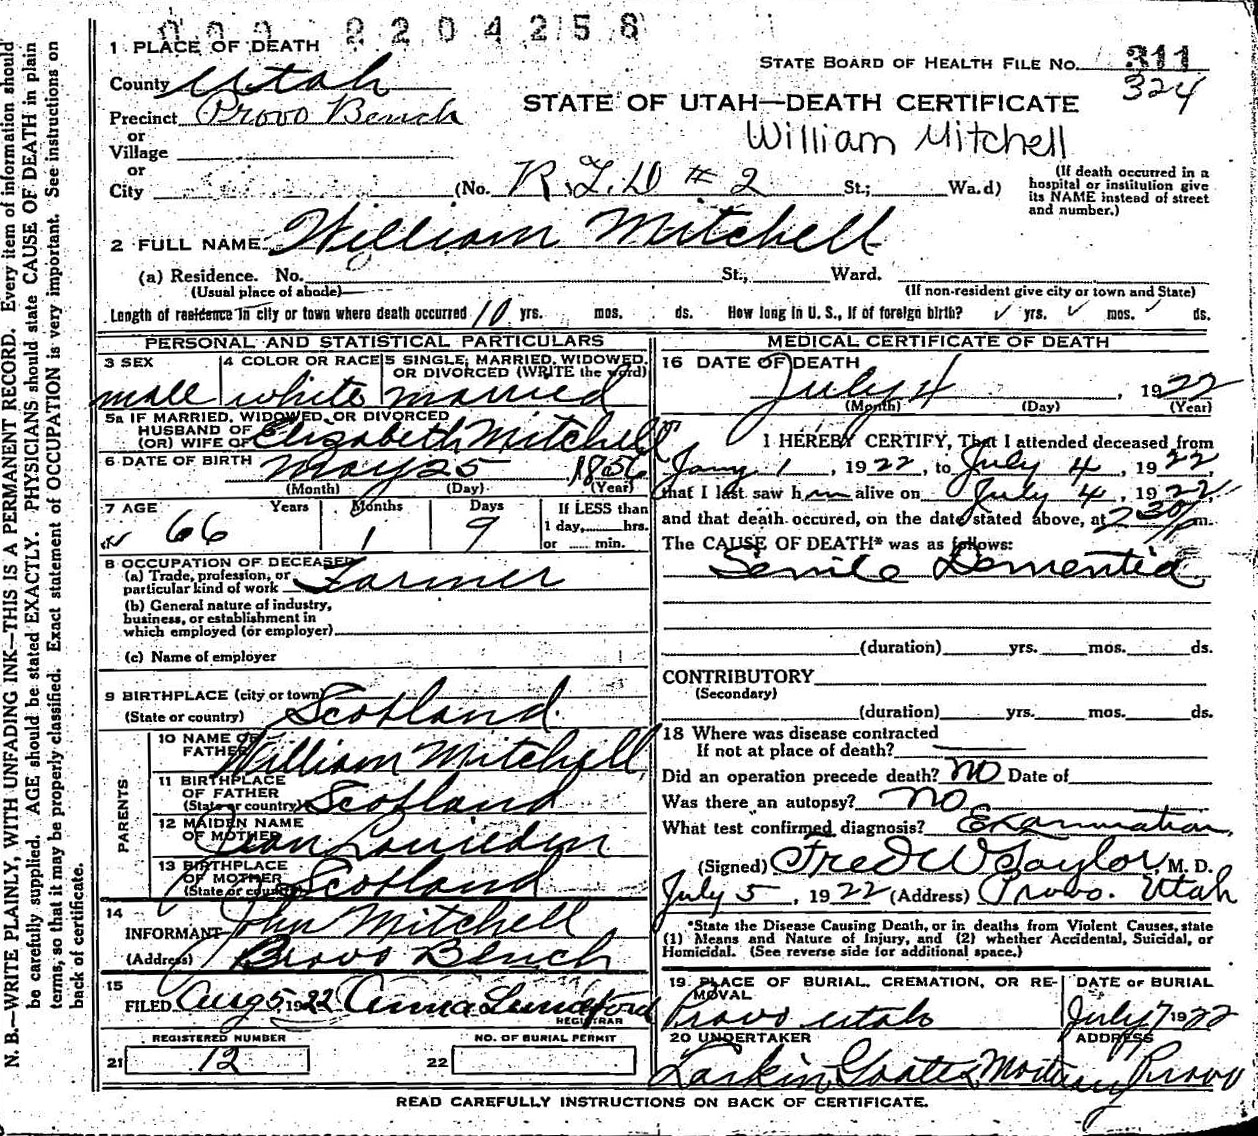 000 2204258
1 PLACE OF DEATH
STATE BOARD OF HEALTH FILE No. 311
324
County Utah
STATE OF UTAH—DEATH CERTIFICATE
Precinct Provo Bench
William Mitchell
or
Village
or
City (No. R.F.D # 2 St.; Wa.d)
(If death occurred in a hospital or institution give its NAME instead of street and number.)
2 FULL NAME William Mitchell
(a) Residence. No. St., Ward.
(Usual place of abode)
(If non-resident give city or town and State)
Length of residence in city or town where death occurred 10 yrs. mos. ds. How long in U. S., if of foreign birth? yrs. mos. ds.
PERSONAL AND STATISTICAL PARTICULARS
3 SEX
male
4 COLOR OR RACE
white
5 SINGLE, MARRIED, WIDOWED, OR DIVORCED (WRITE the word)
married
5a IF MARRIED, WIDOWED, OR DIVORCED
HUSBAND OF
(OR) WIFE OF Elizabeth Mitchell
6 DATE OF BIRTH May 25 1856
(Month) (Day) (Year)
7 AGE Years Months Days If LESS than
66 1 9 1 day, hrs.
or min.
8 OCCUPATION OF DECEASED
(a) Trade, profession, or
particular kind of work Farmer
(b) General nature of industry,
business, or establishment in
which employed (or employer)
(c) Name of employer
9 BIRTHPLACE (city or town)
(State or country) Scotland.
PARENTS
10 NAME OF
FATHER William Mitchell
11 BIRTHPLACE
OF FATHER
(State or country) Scotland
12 MAIDEN NAME
OF MOTHER Jean
13 BIRTHPLACE
OF MOTHER
(State or country) Scotland
14
INFORMANT John Mitchell
(Address) Provo Bench
15
FILED Aug 5, 1922 Anna Lunceford
REGISTRAR
REGISTERED NUMBER
21 12
NO. OF BURIAL PERMIT
22
MEDICAL CERTIFICATE OF DEATH
16 DATE OF DEATH
July 4, 1922
(Month) (Day) (Year)
I HEREBY CERTIFY, That I attended deceased from
Jany 1, 1922, to July 4, 1922,
that I last saw him alive on July 4, 1922,
and that death occured, on the date stated above, at 2 30/p m.
The CAUSE OF DEATH* was as follows:
Senile Dementia
(duration) yrs. mos. ds.
CONTRIBUTORY
(Secondary)
(duration) yrs. mos. ds.
18 Where was disease contracted
If not at place of death?
Did an operation precede death? no Date of
Was there an autopsy? no
What test confirmed diagnosis? Examination
(Signed) Fred W Taylor, M. D.
July 5, 1922 (Address) Provo. Utah
*State the Disease Causing Death, or in deaths from Violent Causes, state
(1) Means and Nature of Injury, and (2) whether Accidental, Suicidal, or
Homicidal. (See reverse side for additional space.)
19 PLACE OF BURIAL, CREMATION, OR RE-
MOVAL
Provo Utah
DATE OF BURIAL
July 7 1922
20 UNDERTAKER
ADDRESS
Larkin Mortuary Provo
READ CAREFULLY INSTRUCTIONS ON BACK OF CERTIFICATE.
N. B.—WRITE PLAINLY, WITH UNFADING INK—THIS IS A PERMANENT RECORD. Every item of information should
be carefully supplied. AGE should be stated EXACTLY. PHYSICIANS should state CAUSE OF DEATH in plain
terms, so that it may be properly classified. Exact statement of OCCUPATION is very important. See instructions on
back of certificate.